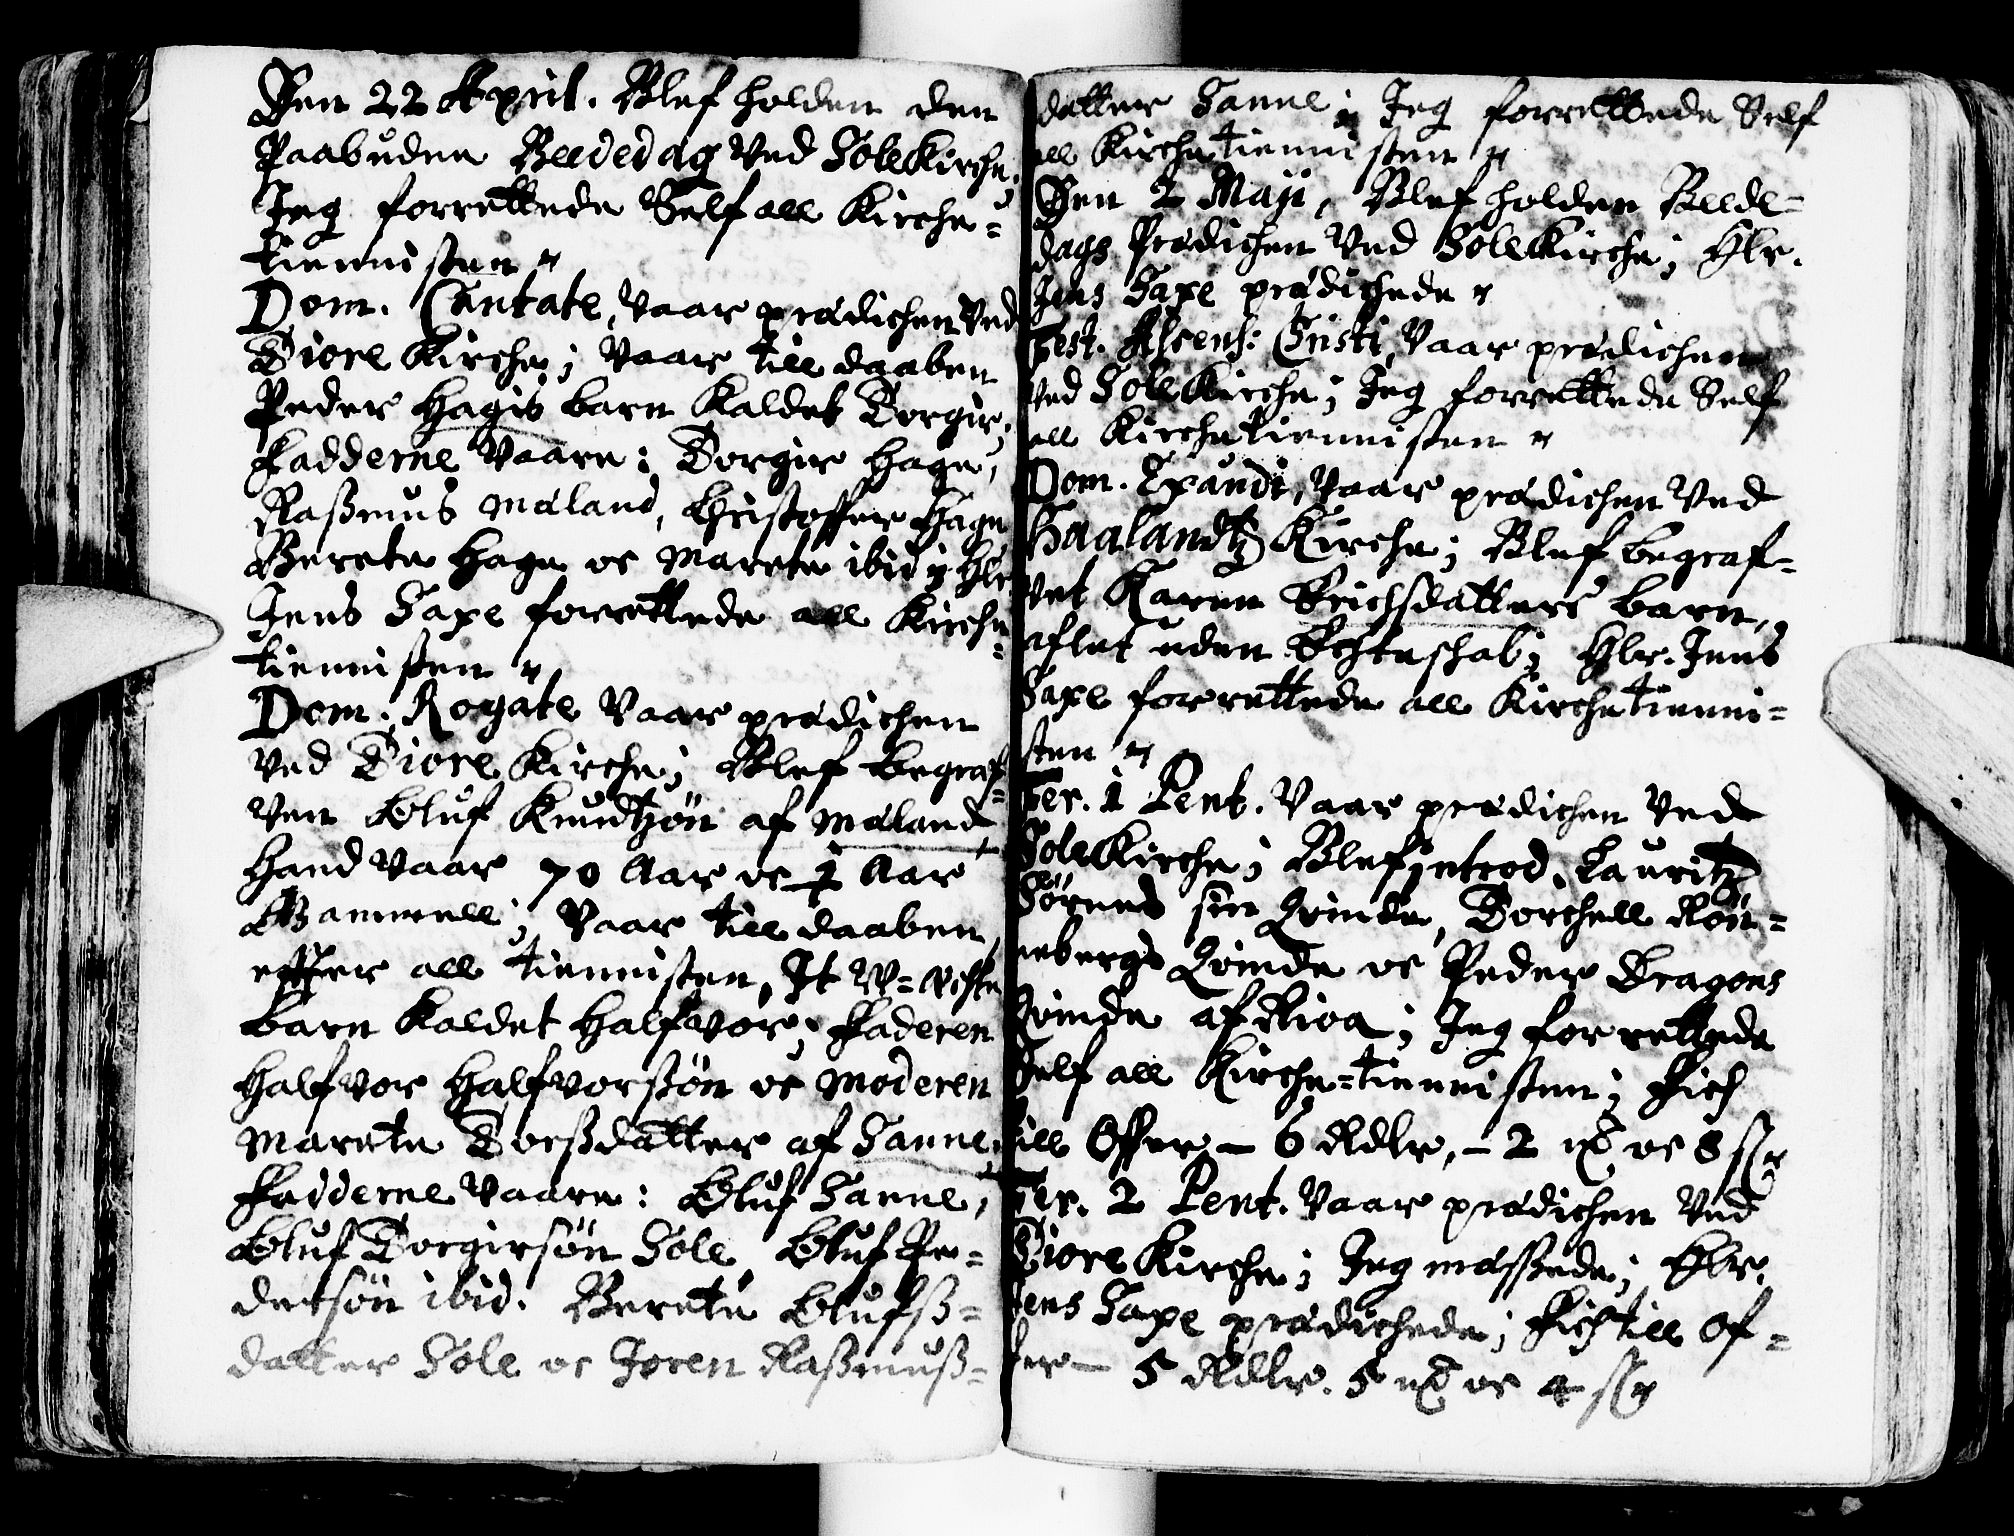 Den 22 April. Blef holden den
Paabuden Beededag Ved Sole Kirche;
Jeg forrettede Self all Kirche-
tiennisten
Dom. Cantate, Vaar prædichen Ved
Tiore Kirche; Vaar till daaben
Peder Hagis barn Kaldet Torgir;
Fadderne Vaare: Torgir Hage,
Rasmus Mæland, Christoffer Hage
Berete Hage oc Marete ibid; Hlr
Jens Saxe forrettede all Kirche-
tiennisten
Dom. Rogate Vaar prædichen
Ved Tiore Kirche; Blef begraf-
Ven Oluf Knudtzøn af Mæland
Hand Vaar 70 Aar oc ½ Aar
Gammell; Vaar till daaben,
effter all tiennisten, It W-echte
barn Kaldet Halfvor; Faderen
Halfvor Halfvorssøn oc Moderen
Marete Torssdatter af Sanne;
Fadderne Vaare: Oluf Sanne,
Oluf Torgirsøn Sole, Oluf Pe-
dersøn ibid. Berete Olufss-
datter Sole oc Joren Rassmuss-
datter Sanne; Jeg forrettede Self
all Kirchetiennisten
Den 2 Maji, Blef holden Beede-
dags Prædichen Ved Sole Kirche; Hlr.
Jens Saxe prædichede
Fest. Ascens: Cristi, Vaar prædichen
Ved Sole Kirche; Jeg forrettede Self
all Kirchetiennisten
Dom. Exaudi, Vaar prædichen Ved
Haalandtz Kirche; Blef begraf-
Vet Karen Erichsdatters barn,
aflet uden Echteschab; Hlr. Jens
Saxe forrettede all Kirchetienni-
sten
Fer. 1 Pent. Vaar prædichen Ved
Sole Kirche; Blef introd. Lauritz
Sørens sin Qvinde, Torchell Røn-
nebergs Qvinde oc Peder Dragons
Qvinde af Risa; Jeg forrettede
Self all Kirche-tiennisten; Fich
till Offer - 6 Rdlr, - 2 oc 8 ss
Fer. 2 Pent. Vaar prædichen Ved
Tiore Kirche; Jeg messede; Hlr.
Jens Saxe prædichede; Fich till Of-
fer - 5 Rdlr. 5 oc 4 ss